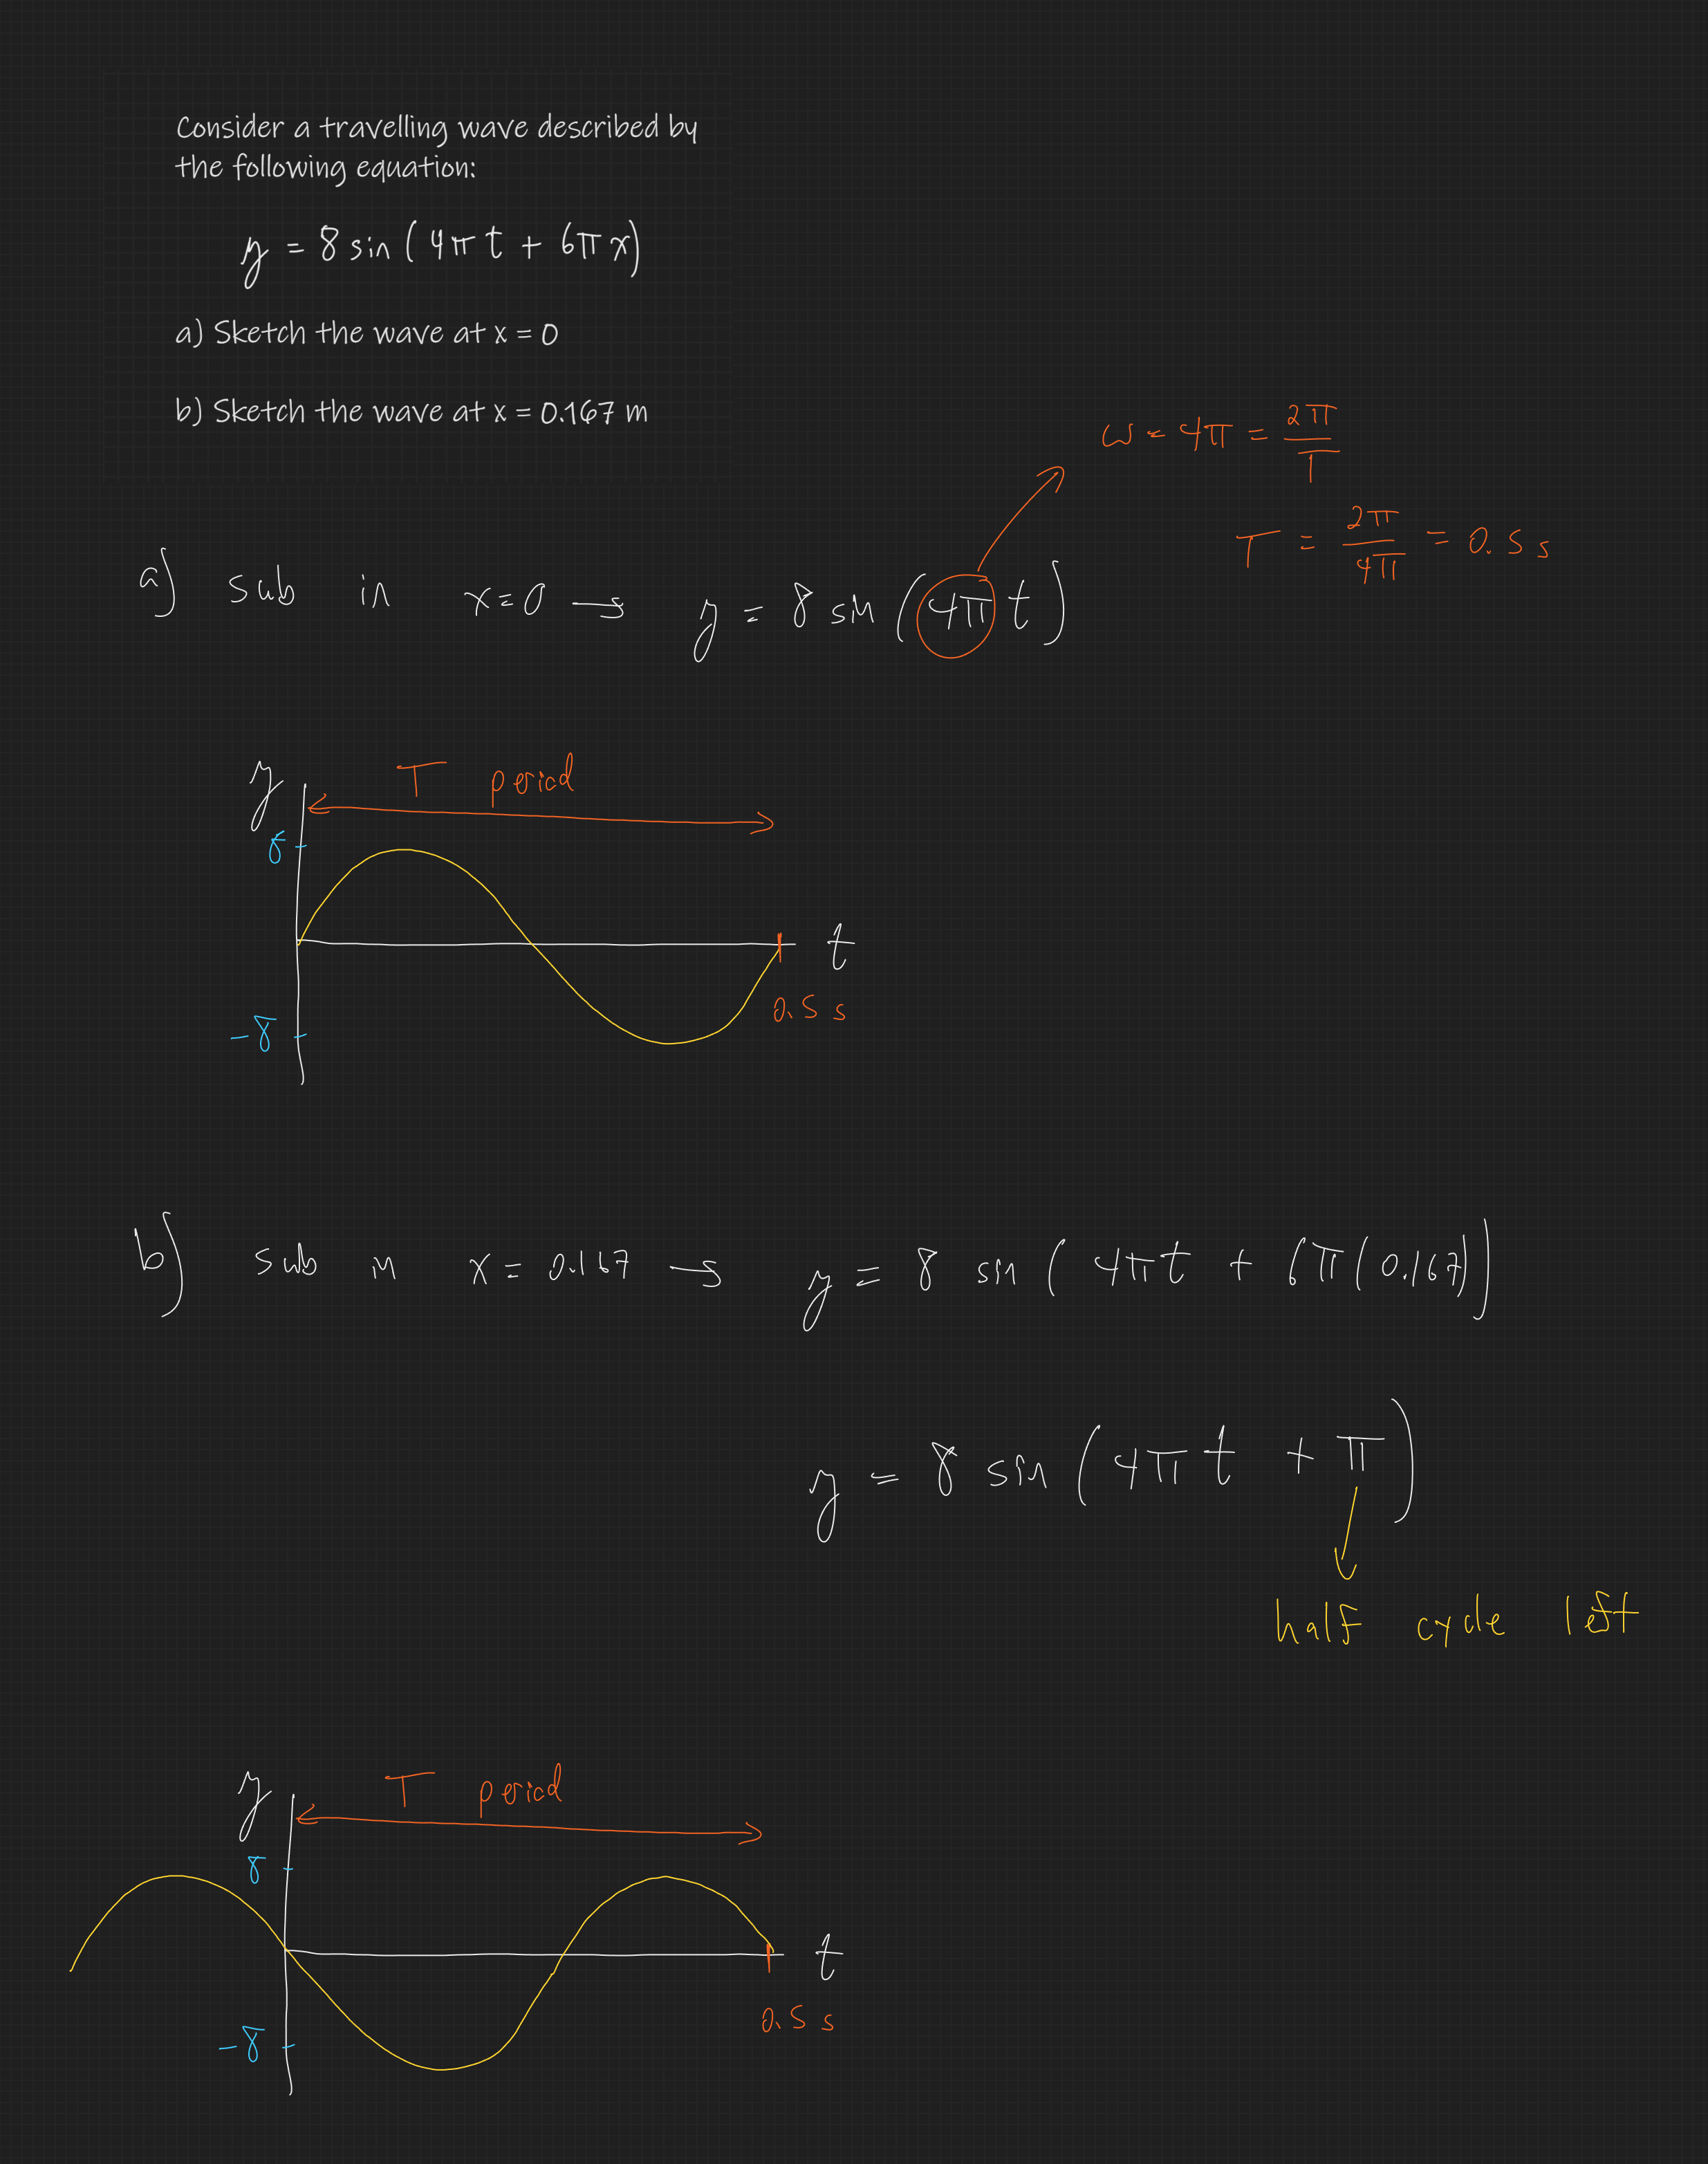 Consider a travelling wave described by
the following equation:
y = 8 sin ( 4π t + 6π x)
a) Sketch the wave at x = 0
b) Sketch the wave at x = 0.167 m
ω = 4π = 2π/T
T = 2π/4π = 0.5 s
a) sub in x=0 → y = 8 sin (4π t)
y
T period
8
t
0.5 s
-8
b) sub in x = 0.167 → y = 8 sin ( 4πt + 6π(0.167))
y = 8 sin (4π t + π)
half cycle left
y
T period
8
t
0.5 s
-8